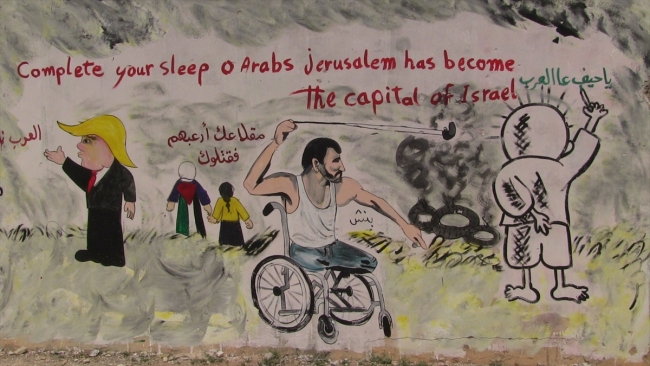 Complete your sleep o Arabs jerusalem has become
The capital of Israel
يا حيف عا العرب
العرب
مقلاعك أرعبهم
فقتلوك
بنش